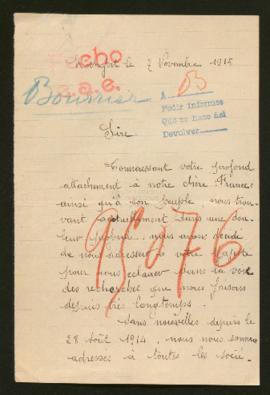 le 7 Novembre 1915
Fecho
s.a.e.
Bournier
A
Pedir informes
Que no hace Asi
Devolver
Sire
Connaissant votre profond
attachement à notre chère France
ainsi qu'à son peuple nous trou
vant actuellement dans une dou
leur profonde, nous avons décidé
de nous adresser à votre Majesté
pour nous éclairer dans la voie
des recherches que nous faisons
depuis très longtemps.
Sans nouvelles depuis le
28 Août 1914, nous nous sommes
adressés à toutes les socié